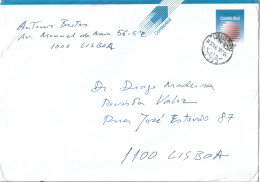 António Bretas
Av. Manuel da Maia 56-5ºE
1000 LISBOA
Correio Azul
Correio Azul
Dr. Diogo Madeira
Revista Valor
Rua José Estevão 87
1100 LISBOA